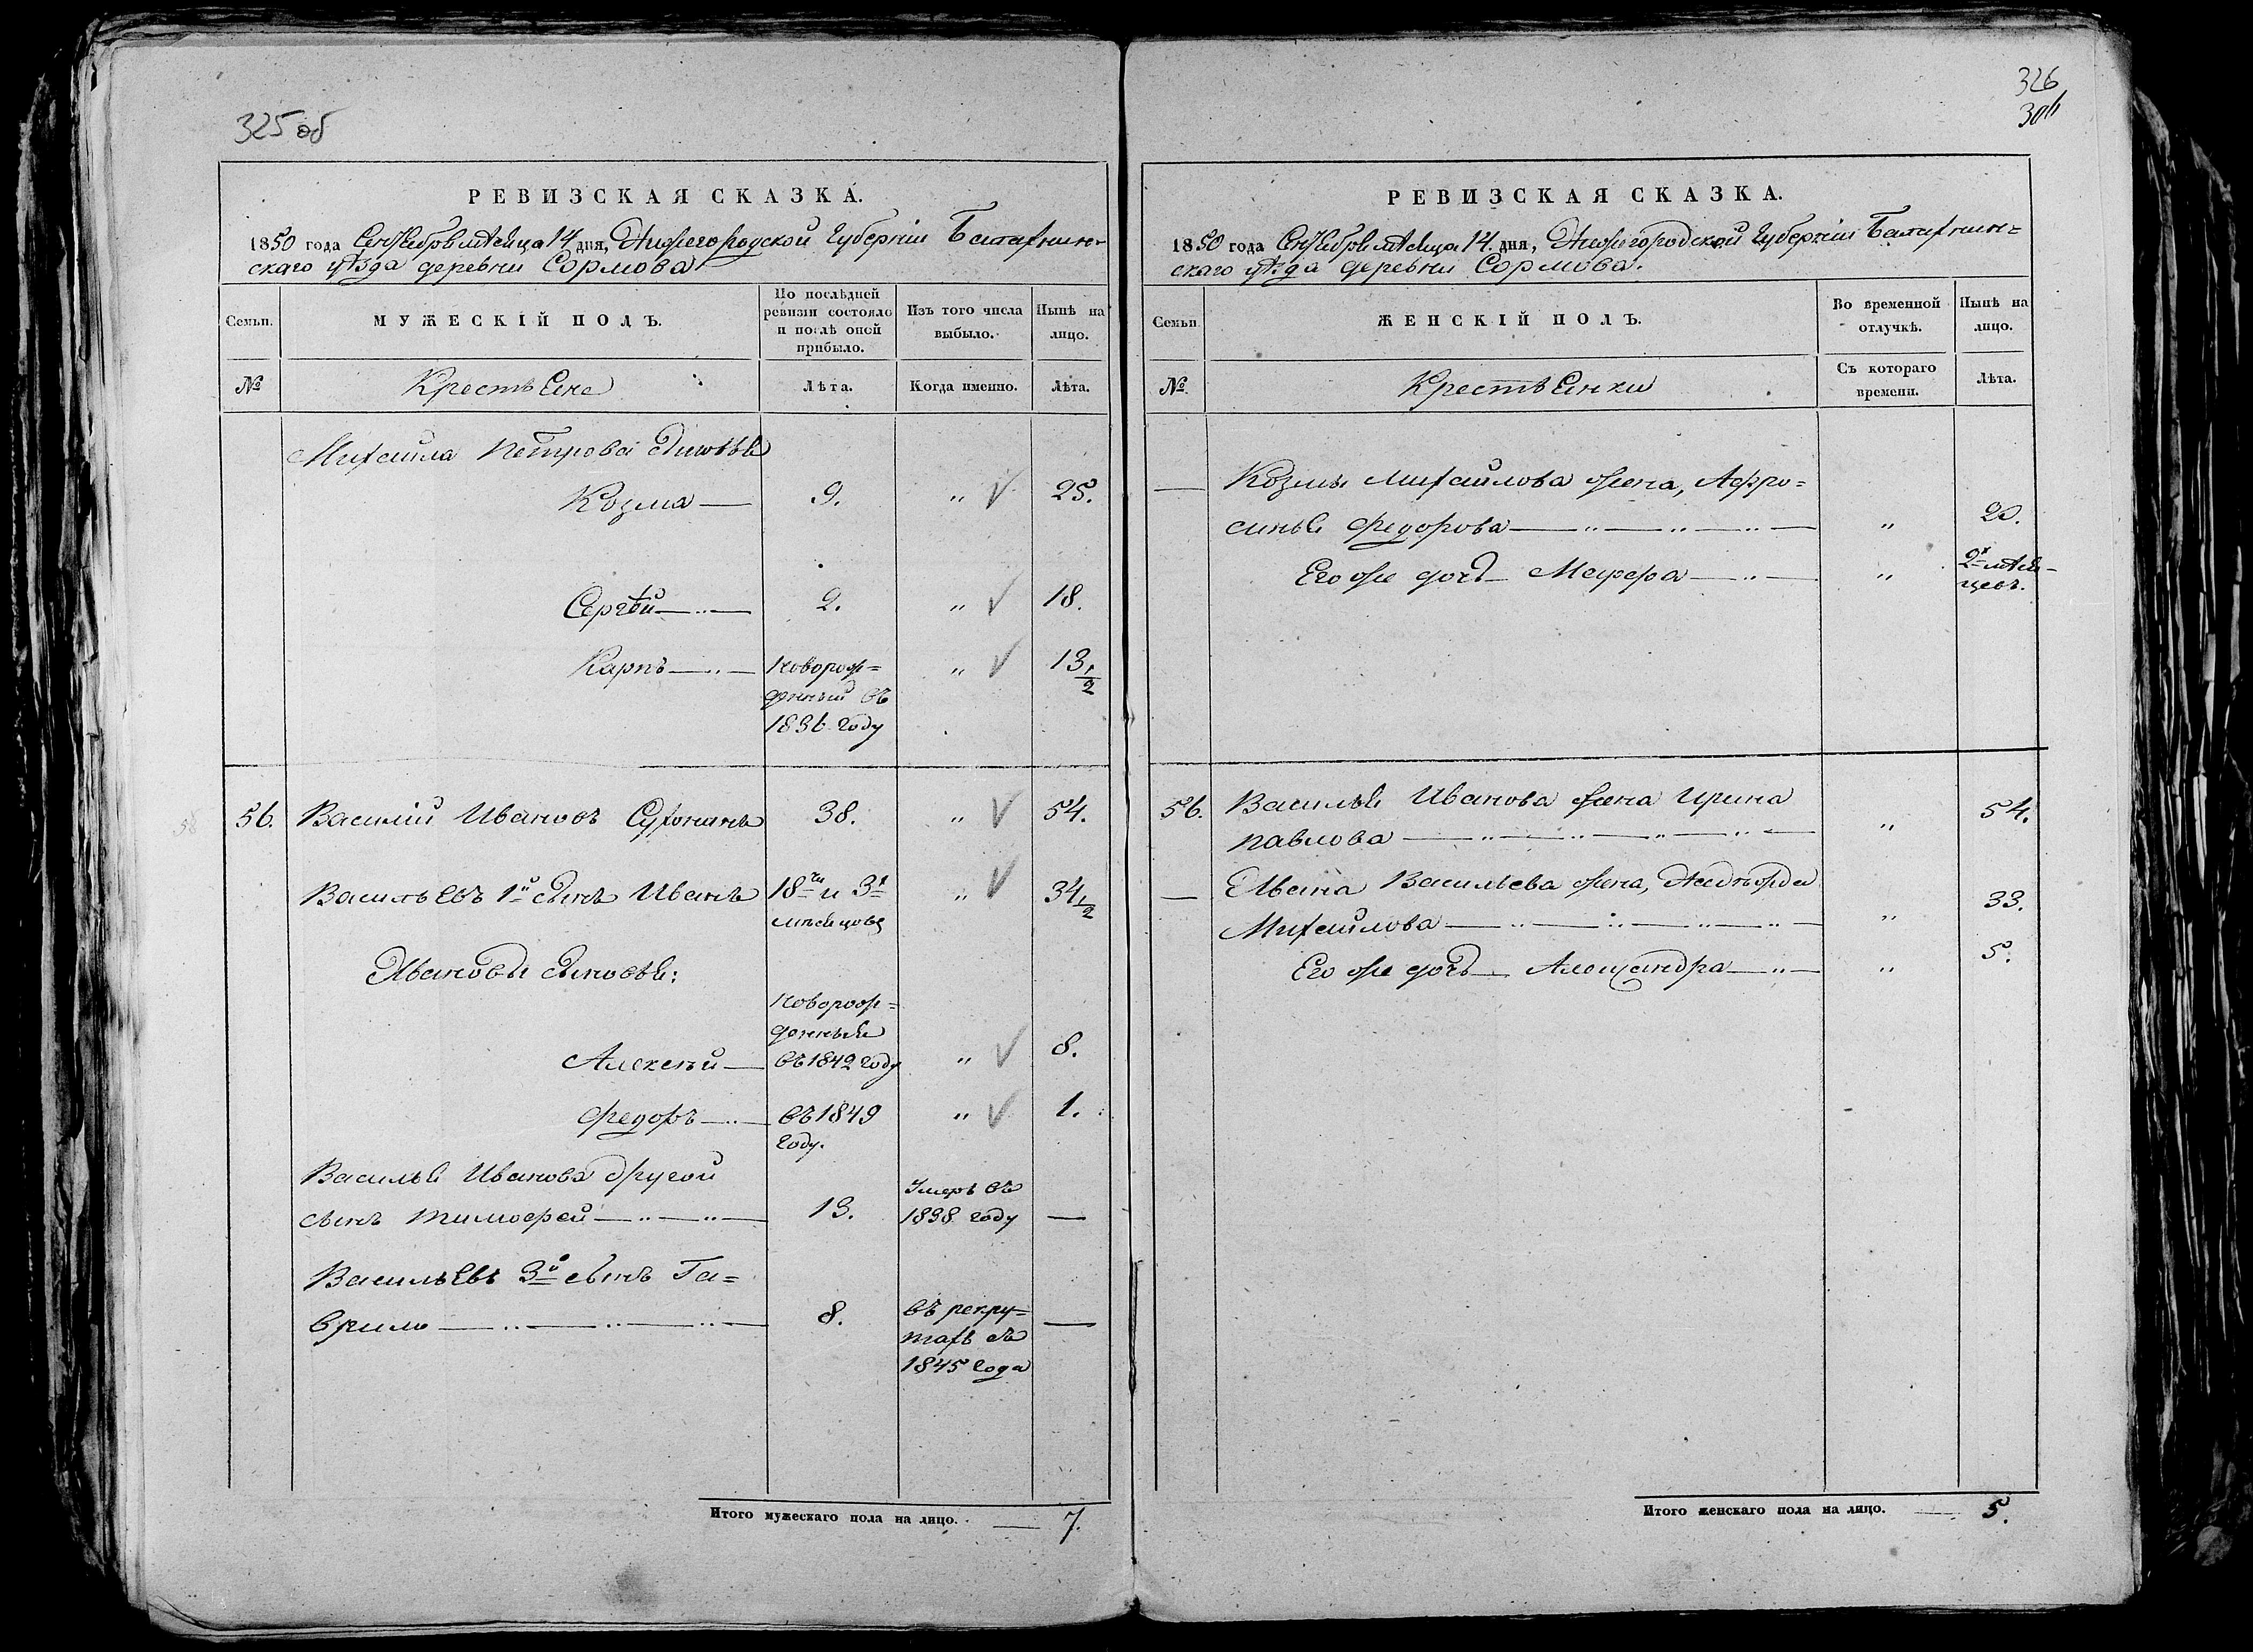 325 об
РЕВИЗСКАЯ СКАЗКА.
1850 года Сентября мѣсяца 14 дня, Нижегородской Губерніи Балахнин-
скаго уѣзда деревни Сормова
Семьи.
МУЖЕСКІЙ ПОЛЪ.
По послѣдней
ревизіи состояло
и послѣ оной
прибыло.
Изъ того числа
выбыло.
Нынѣ на
лицо.
№
Крестьяне
Лѣта.
Когда именно.
Лѣта.
Михаила Петрова сыновья
Козма — 9. " 25.
Сергѣй — " — 2. " 18.
Карпъ — " — новорож= " 13 1/2
денный въ
1836 году
56. Василій Ивановъ Сухонинъ 38. " 54.
Васильевъ 1й сынъ Иванъ 18ти и 3х " 34 1/2
мѣсяцовъ
Ивановы сыновья:
новорож=
денныя
Алексѣй — въ 1842 году " 8.
Федоръ — " — въ 1849 " 1.
году.
Василья Иванова другой
сынъ Тимофей — " — " — 13. Умеръ въ 1838 году —
Васильевъ 3й сынъ Га=
врило — " — " — " — 8. въ рекру= —
тахъ съ
1845 года
Итого мужескаго пола на лицо. — 7.
326
306
РЕВИЗСКАЯ СКАЗКА.
1850 года Сентября мѣсяца 14 дня, Нижегородской Губерніи Балахнин=
скаго уѣзда деревни Сормова.
Семьи
ЖЕНСКІЙ ПОЛЪ.
Во временной
отлучкѣ.
Нынѣ на
лицо.
№
Крестьянки
Съ котораго
времени.
Лѣта.
— Козмы Михайлова жена, Афро=
синья Федорова — " — " — " — " 20.
Его же дочь — Марфа — " — " 2х мѣся-
цевъ.
56. Василья Иванова жена Ирина
Павлова — " — " — " — " — " 54.
— Ивана Васильева жена, Надѣжда
Михайлова — " — " — " — " — " 33.
Его же дочь — Александра — " — " 5.
Итого женскаго пола на лицо. — 5.